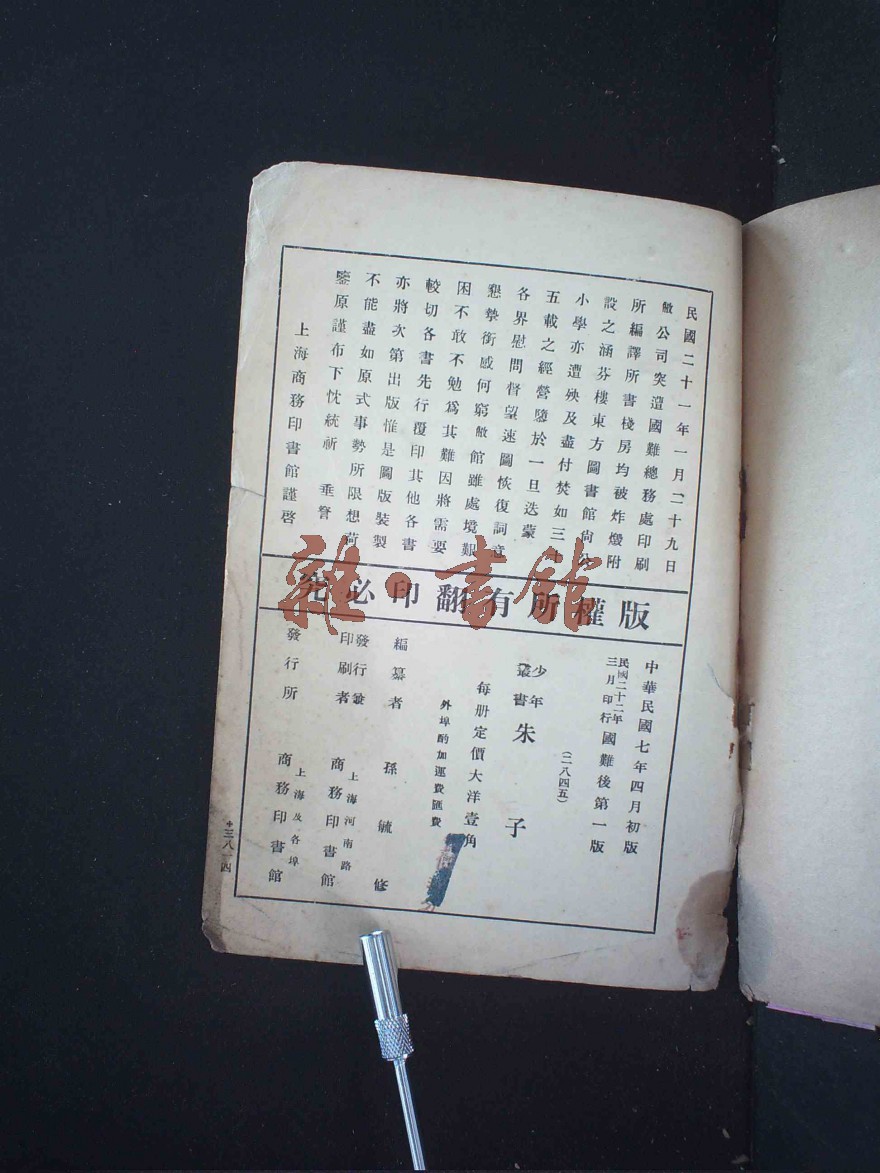 民國二十一年一月二十九日
敝公司突遭國難總務處印刷
所編譯所書棧房均被炸燬附
設之涵芬樓東方圖書館尙公
小學亦遭殃及盡付焚如三十
五載之經營隳於一旦迭蒙
各界慰問督望速圖恢復詞意
懇摯銜感何窮敝館雖處境艱
困不敢不勉爲其難因將需要
較切各書先行覆印其他各書
亦將次第出版惟是圖版裝製
不能盡如原式事勢所限想荷
鑒原謹布下忱統祈 垂詧
上海商務印書館謹啓
版權所有翻印必究
中華民國七年四月初版
民國二十二年三月印行國難後第一版
(二八四五)
少年叢書 朱子
每册定價大洋壹角
外埠酌加運費匯費
編纂者 孫毓修
發行兼印刷者 上海河南路 商務印書館
發行所 上海及各埠 商務印書館
雜·書館